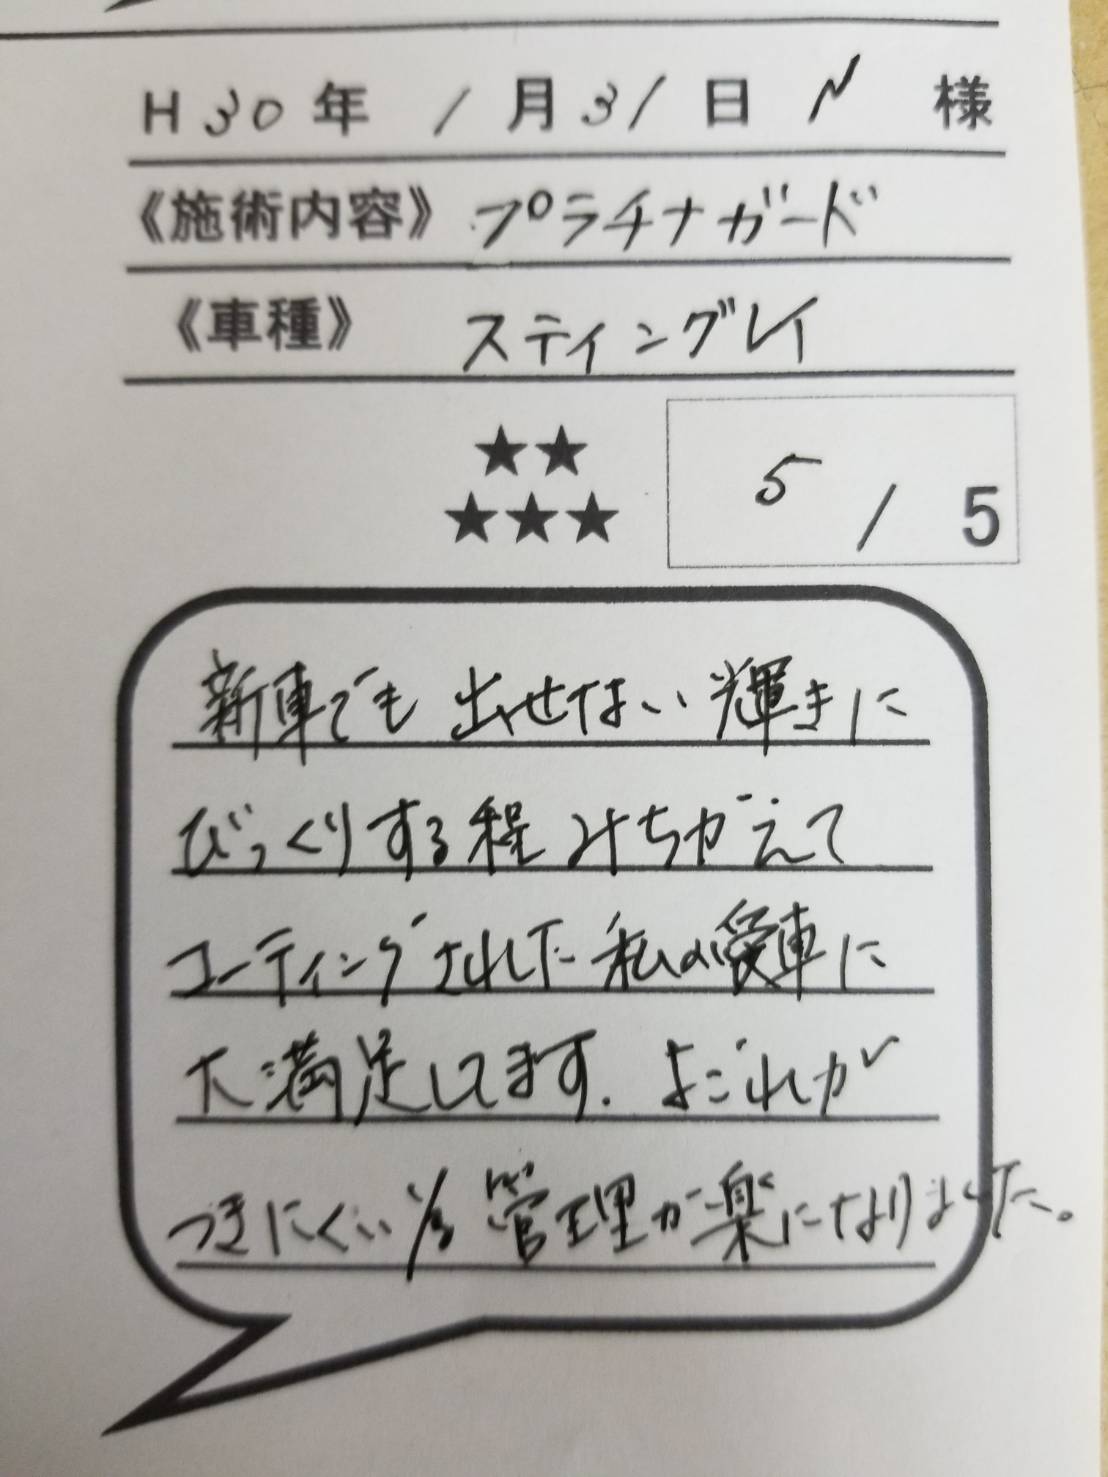 H30年 1月31日 N 様
《施術内容》 プラチナガード
《車種》 スティングレイ
★★
★★★
5 / 5
新車でも出せない輝きに
びっくりする程みちがえて
コーティングされた私の愛車に
大満足してます. よごれが
つきにくい為管理が楽になりました。